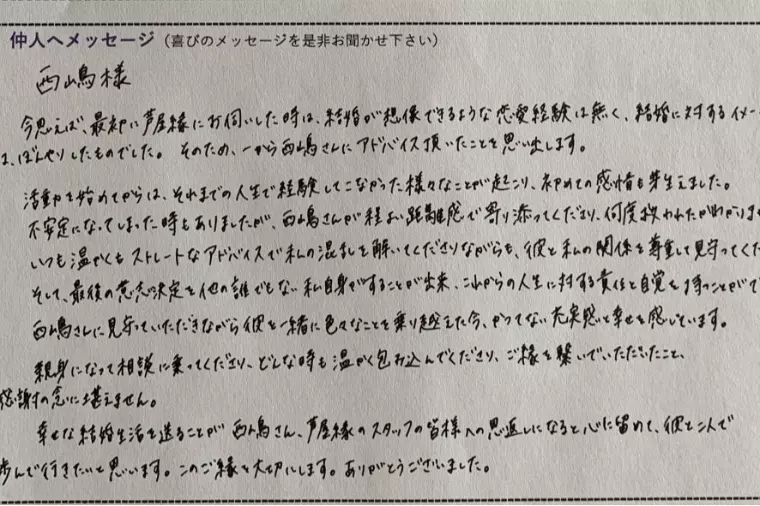 仲人へメッセージ（喜びのメッセージを是非お聞かせ下さい）
西嶋様
今思えば、最初に芦屋縁にお伺いした時は、結婚が想像できるような恋愛経験は無く、結婚に対するイメー
は、ぼんやりしたものでした。そのため、一から西嶋さんにアドバイス頂いたことを思い出します。
活動を始めてからは、それまでの人生で経験してこなかった様々なことが起こり、初めての感情も芽生えました。
不安定になってしまった時もありましたが、西嶋さんが程よい距離感で寄り添ってくださり、何度救われたかわかりま
いつも温かくもストレートなアドバイスで私の混乱を解いてくださりながらも、彼と私の関係を尊重して見守ってくだ
そして、最後の意志決定を他の誰でもない私自身ですることが出来、これからの人生に対する責任と自覚を持つことがで
西嶋さんに見守っていただきながら彼と一緒に色々なことを乗り越えた今、かつてない充実感と幸せを感じています。
親身になって相談に乗ってくださり、どんな時も温かく包み込んでくださり、ご縁を繋いでいただいたこと、
感謝の念に堪えません。
幸せな結婚生活を送ることが西嶋さん、芦屋縁のスタッフの皆様への恩返しになると心に留めて、彼と二人で
歩んで行きたいと思います。このご縁を大切にします。ありがとうございました。